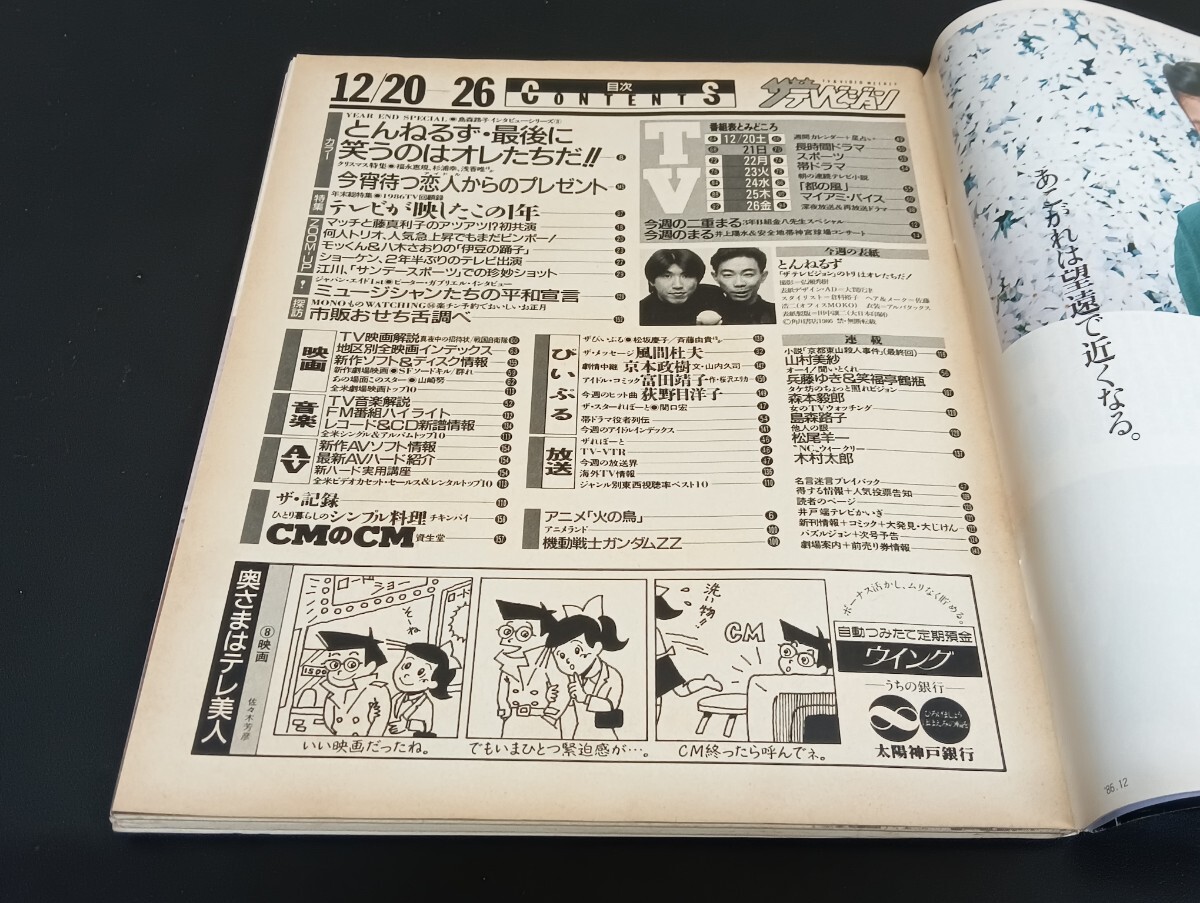 12/20-26
目次
CONTENTS
TV & VIDEO WEEKLY
ザテレビジョン
カラー
YEAR END SPECIAL◉島森路子インタビューシリーズ
とんねるず・最後に
笑うのはオレたちだ!!
クリスマス特集・福永恵規、杉浦幸、浅香唯
今宵待つ恋人からのプレゼント
特集
年末総特集◉1986TV回顧録
テレビが映したこの1年
ZOOM-UP
マッチと藤真利子のアツアツ!?初共演
何人トリオ、人気急上昇でもまだビンボー!
モッくん&八木さおりの「伊豆の踊子」
ショーケン、2年半ぶりのテレビ出演
江川、「サンデースポーツ」での珍妙ショット
!
ジャパン・エイド1st◉ピーター・ガブリエル・インタビュー
ミュージシャンたちの平和宣言
探訪
MONOものWATCHING 楽チン予約でおいしいお正月
市販おせち舌調べ
映画
TV映画解説 真夜中の招待状/戦国自衛隊
地区別全映画インデックス
新作ソフト&ディスク情報
新作劇場映画◉SFソードキル/群れ
あの場面このスター◉山崎努
全米劇場映画トップ10
音楽
TV音楽解説
FM番組ハイライト
レコード&CD新譜情報
全米シングル&アルバムトップ10
AV
新作AVソフト情報
最新AVハード紹介
新ハード実用講座
全米ビデオカセット・セールス&レンタルトップ10
ザ・記録
ひとり暮らしのシンプル料理 チキンパイ
CMのCM 資生堂
TV
番組表とみどころ
12/20土
21日
22月
23火
24水
25木
26金
週間カレンダー+星占い
長時間ドラマ
スポーツ
帯ドラマ
朝の連続テレビ小説
「都の風」
マイアミ・バイス
深夜放送&再放送ドラマ
今週の二重まる 3年B組金八先生スペシャル
今週のまる 井上陽水&安全地帯神宮球場コンサート
今週の表紙
とんねるず
「ザテレビジョン」のトリはオレたちだ!
Ⓒ角川書店1986 禁・無断転載
ぴいぷる
ザぴいぷる◉松坂慶子/斉藤由貴
ザ・メッセージ 風間杜夫
劇情中継 京本政樹 文・山内久司
アイドル・コミック 富田靖子 作・桜沢エリカ
今週のヒット曲 荻野目洋子
ザ・スターれぽーと◉関口宏
帯ドラマ役者列伝
今週のアイドルインデックス
放送
ザれぽーと
TV-VTR
今週の放送界
海外TV情報
ジャンル別東西視聴率ベスト10
アニメ「火の鳥」
アニメランド
機動戦士ガンダムZZ
連載
小説「京都東山殺人事件」(最終回)
山村美紗
オー!聞いとくれ
兵藤ゆき&笑福亭鶴瓶
タケ坊のちょっと照れビジョン
森本毅郎
女のTVウォッチング
島森路子
他人の眼
松尾羊一
“NC„ウィークリー
木村太郎
名言迷言プレイバック
得する情報+人気投票告知
読者のページ
井戸端テレビかいぎ
新刊情報+コミック+大発見・大じけん
パズルジョン+次号予告
劇場案内+前売り券情報
奥さまはテレ美人
⑧映画
佐々木芳彦
ロードショー
ロード
1500
そーね
いい映画だったね。
でもいまひとつ緊迫感が…。
洗い物!!
CM
CM終ったら呼んでネ。
ボーナス活かし、ムリなく貯める。
自動つみたて定期預金
ウイング
うちの銀行
太陽神戸銀行
あこがれは望遠で近くなる。
'86.12